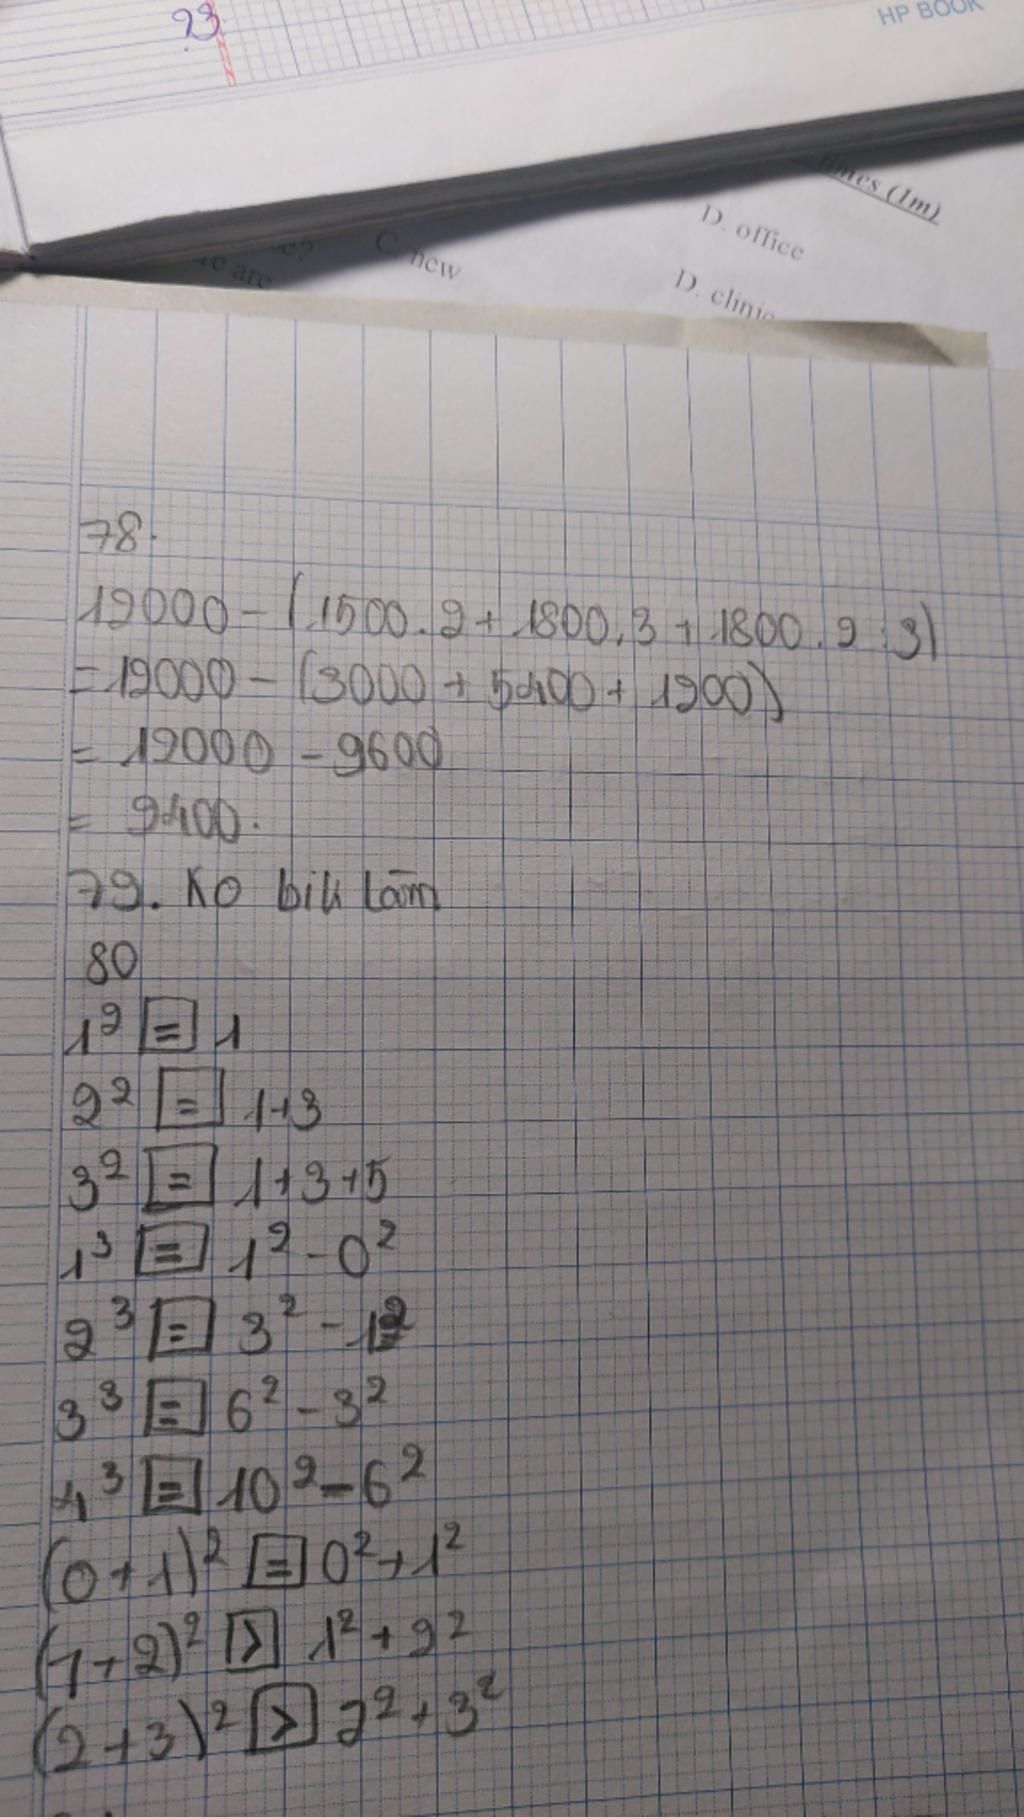 23
HP BOOK
times (1m)
D. office
C. new
re are
D. clinic
78.
12000 - (1500.2 + 1800.3 + 1800.2:3)
= 12000 - (3000 + 5400 + 1200)
= 12000 - 9600
= 2400.
79. Ko bik làm
80
1² = 1
2² = 1+3
3² = 1+3+5
1³ = 1² - 0²
2³ = 3² - 1²
3³ = 6² - 3²
4³ = 10² - 6²
(0+1)² = 0² + 1²
(1+2)² > 1² + 2²
(2+3)² > 2² + 3²